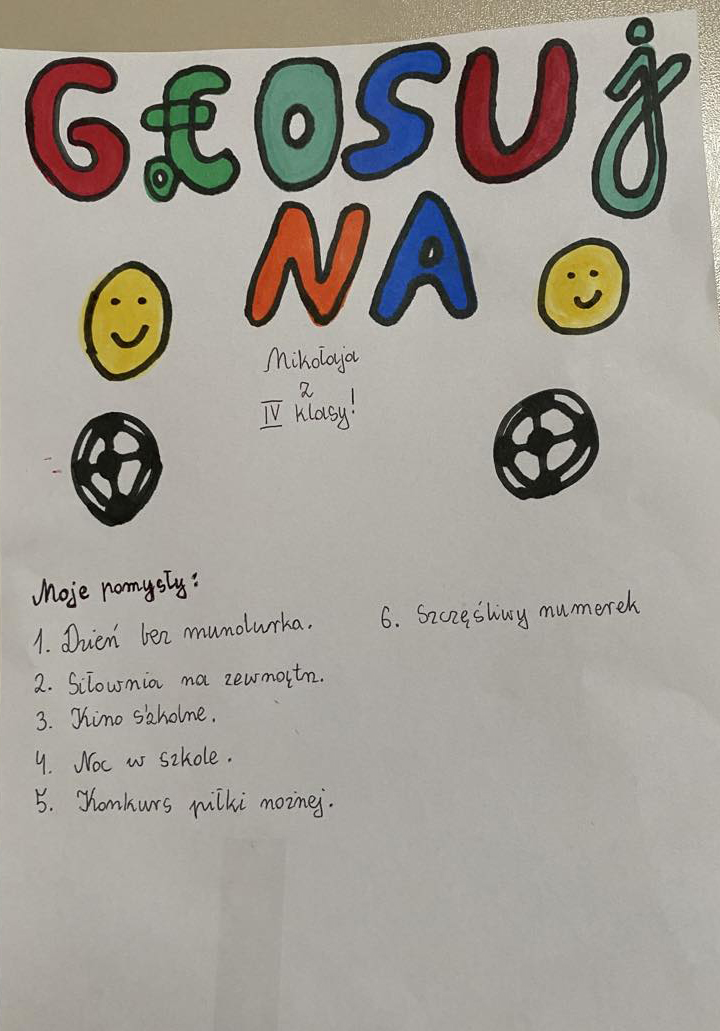 GŁOSUj
NA
Mikołaja
z
IV klasy!
Moje pomysły:
1. Dzień bez mundurka.
2. Siłownia na zewnątrz.
3. Kino szkolne.
4. Noc w szkole.
5. Konkurs piłki nożnej.
6. Szczęśliwy numerek